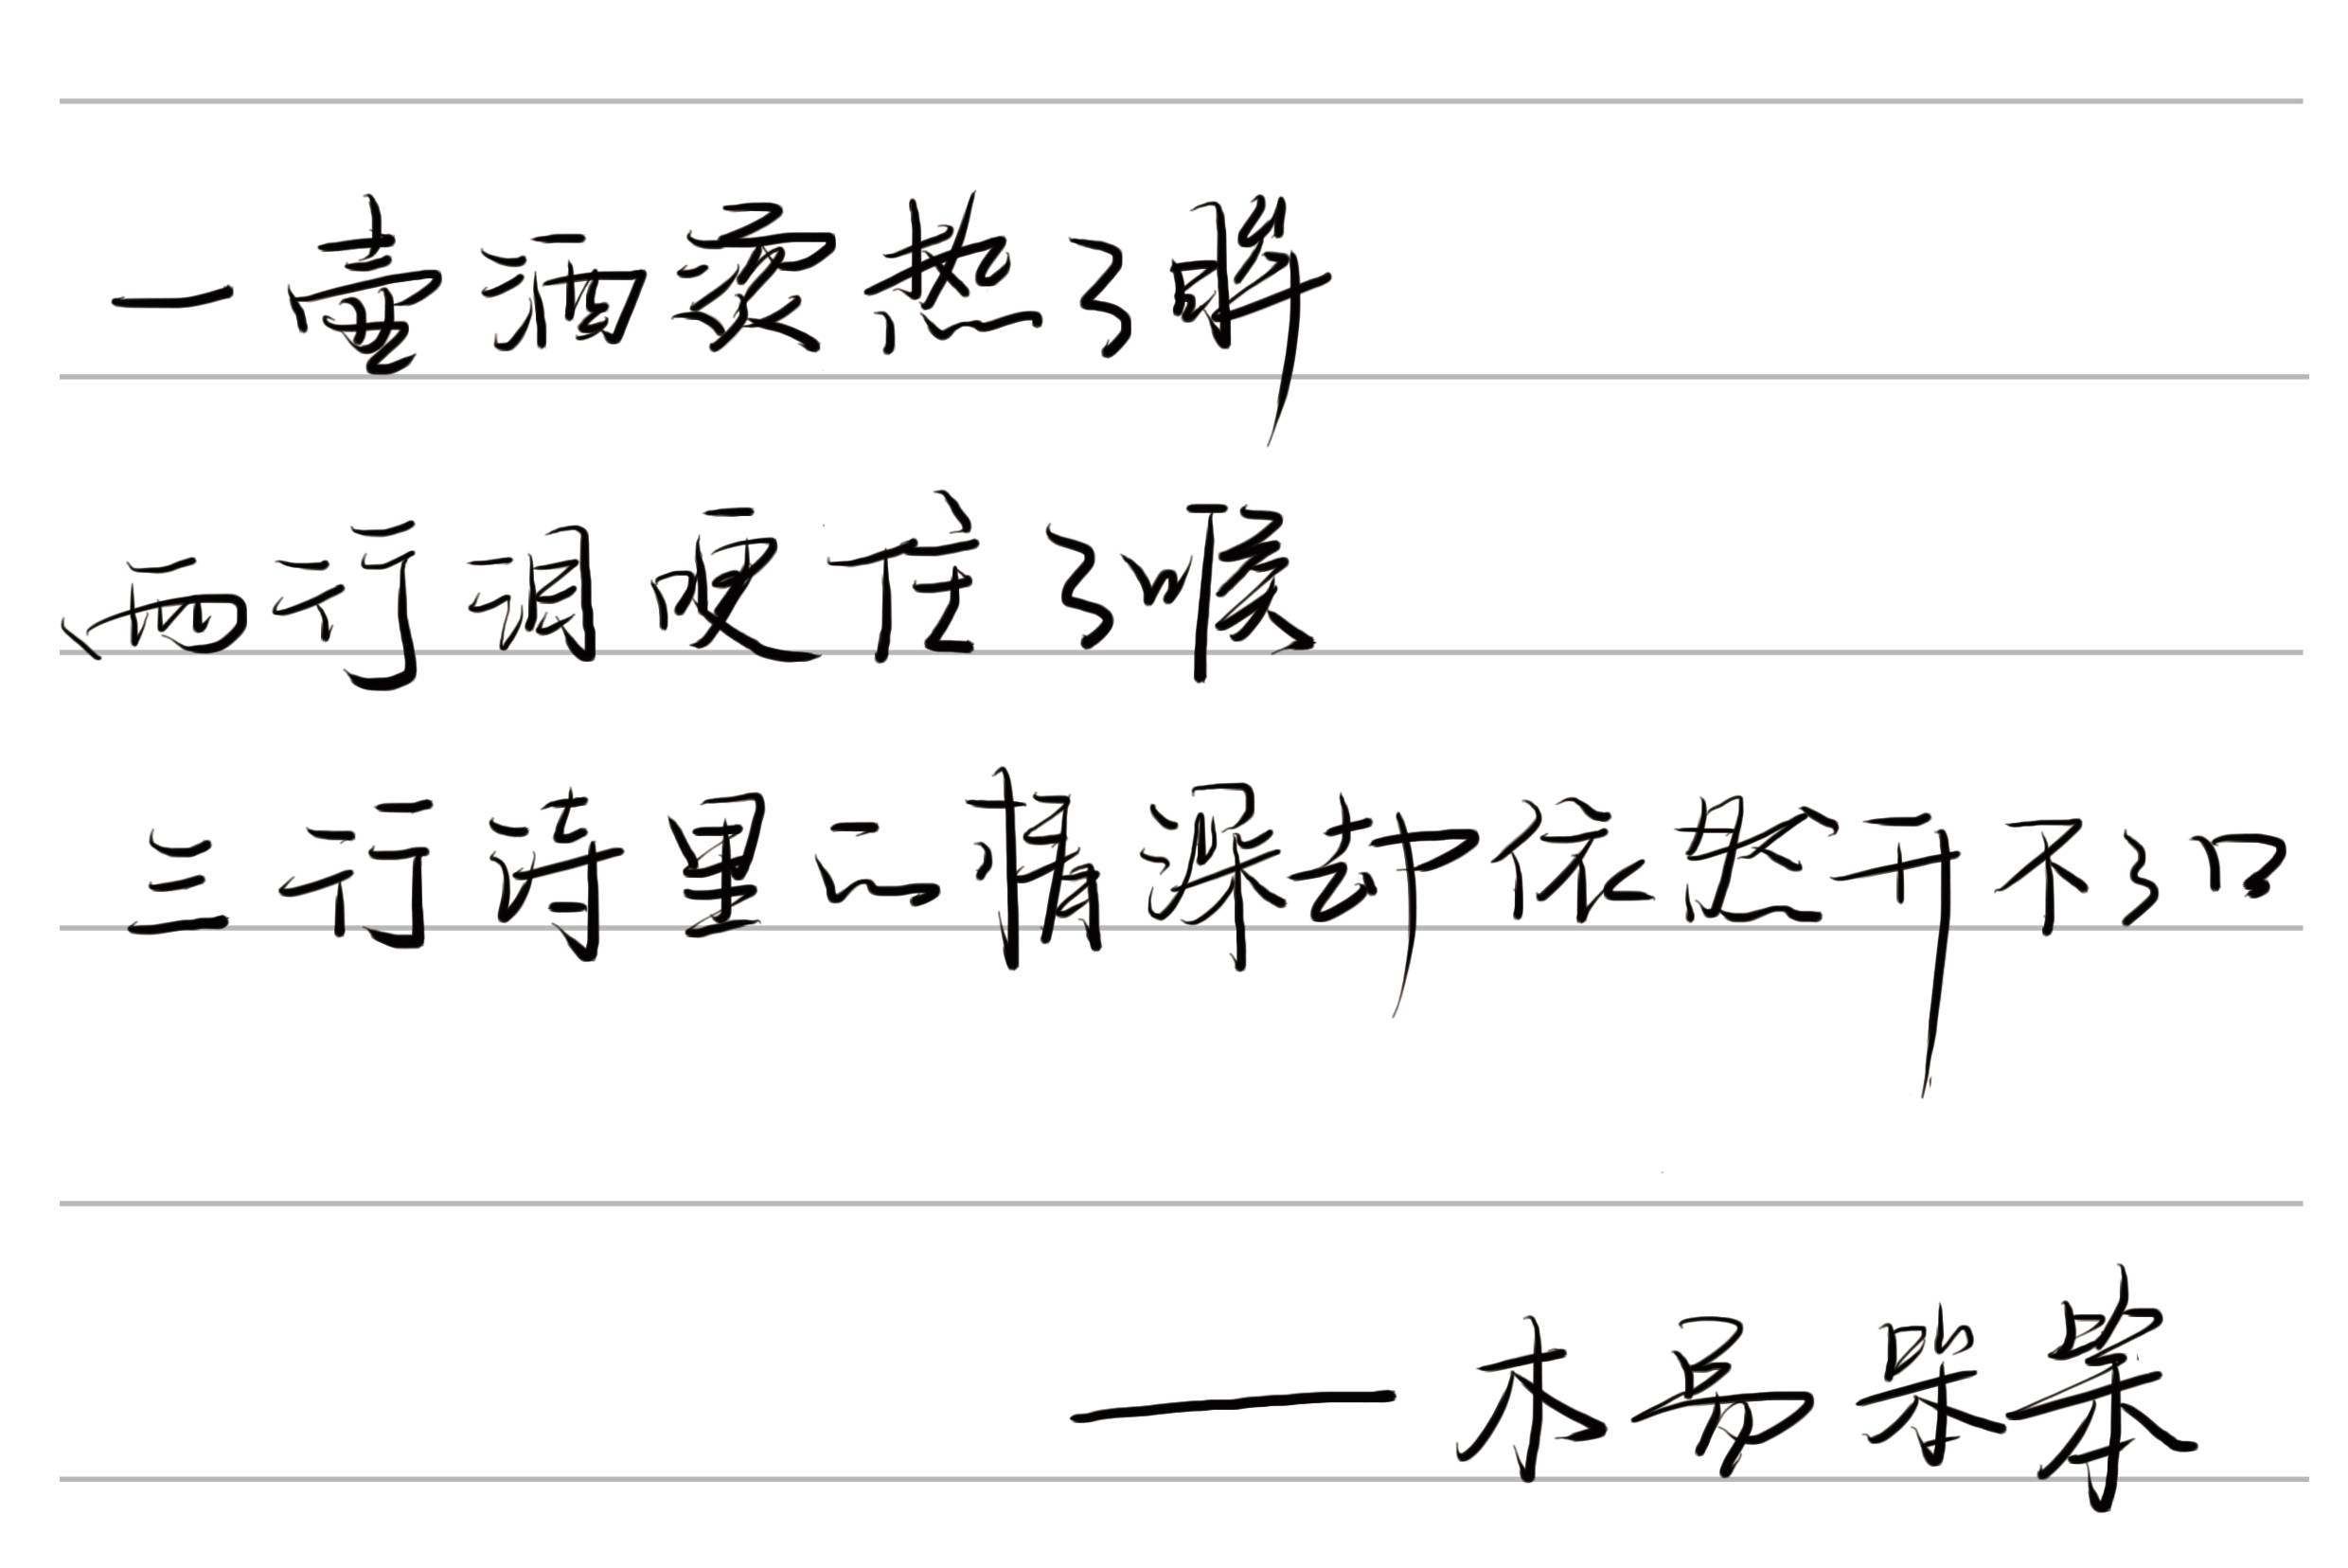 一壶酒烫热了眸
两行词哽住了喉
三行诗里情深却依然开不了口
——木易柴柴